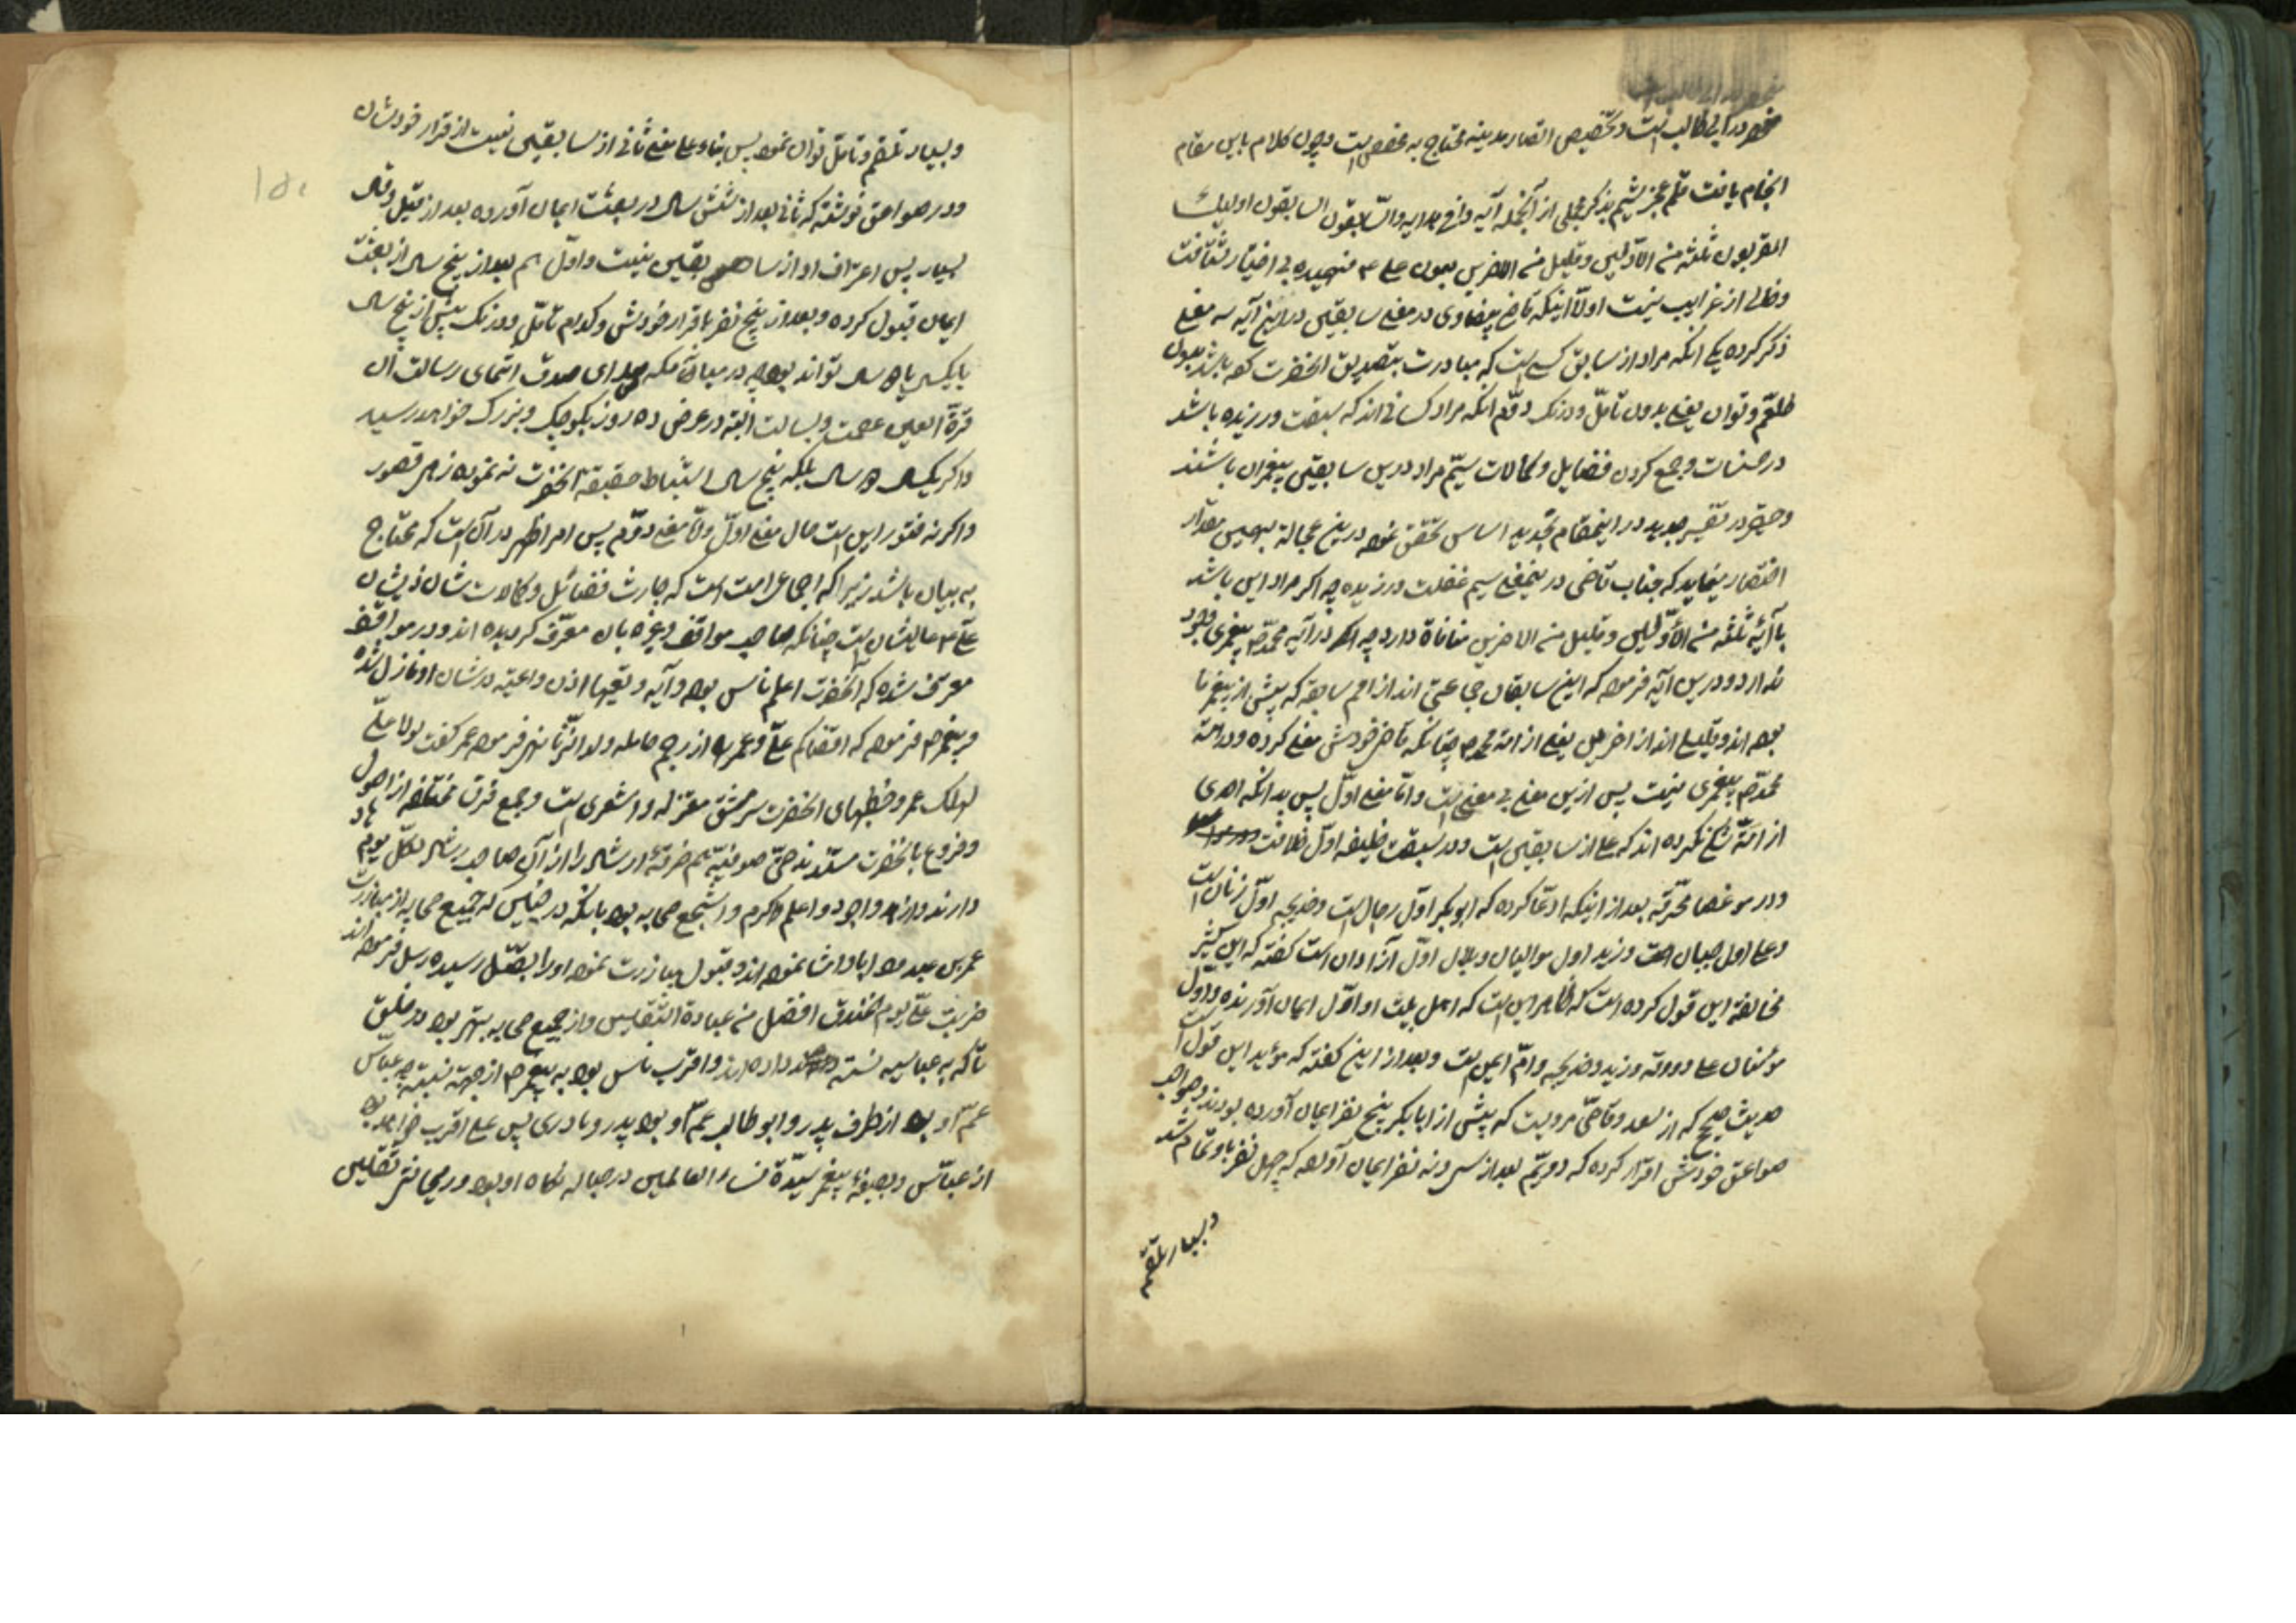 در ابی طالب است و تخصیص انصار مدینه محتاج به مخصص است و چون کلام باین مقام
انجام یافت قلم بذکر مجملی از آنجمله آیه والسابقون السابقون اولیک
المقربون ثلثة من الاولین و قلیل من الاخرین
و خالی از غرایب نیست اولا اینکه قاضی بیضاوی در معنی سابقین درین آیه سه معنی
ذکر کرده یکی انکه مراد از سابق کسی است که مبادرت بتصدیق انحضرت کرده باشد بدون
تلعثم و توان یعنی بدون تامل و درنک دوم انکه مراد کسانی اند که سبقت ورزیده باشد
در حسنات و جمع کردن فضایل و کمالات سیم مراد درین سابقین پیغمران باشند
در تفسیر جدید در اینمقام تجدید اساس تحقیق نموده درین عجاله بهمین مقدار
اختصار مینماید که جناب قاضی در معنی سیم غفلت ورزیده چه اکر مراد این باشد
با آیه ثلثة من الاولین و قلیل من الاخرین منافاة دارد چه در آیه محمد پیغمری وجود
ندارد و درین آیه فرموده که این سابقان جماعتی اند از امم سابقه که پیش از پیغمر ما
بوده اند و قلیلی اند از اخرین یعنی از امة محمد چنانکه قاضی خودش معنی کرده و در امة
محمد پیغمری نیست پس ازین معنی بی معنی است و اما معنی اول پس بدانکه احدی
از امة شک نکرده اند که علی از سابقین است و در سبقت خلیفه اول خلافت
و در صواعق محرقه بعد از اینکه ادعا کرده که ابوبکر اول رجال است و خدیجه اول زنان است
و علی اول صبیان است و زید اول موالیان و بلال اول آزادان است کفته که ابن کثیر
مخالفة این قول کرده است که ظاهر این است که اهل بیت او اول ایمان آورنده و اول
مؤمنان علی و ورقه و زید و خدیجه و ام ایمن است و بعد از این کفته که مؤید این قول است
حدیث صحیح که از سعد وقاص مرویست که پیش از ابابکر پنج نفر ایمان آورده بودند و صاحب
صواعق خودش اقرار کرده که دویم بعد از سی و نه نفر ایمان آورده که چهل نفر باو تمام شد
و بسیار تلعثم
و بسیار تلعثم و تامل توان نمود پس بناء علی معنی ثانی از سابقین نیست از قرار خودشان
و در صواعق نوشته که ثانی بعد از شش سال در بعثت ایمان آورده بعد از قیل و قال
بسیار پس اعتراف او از سابقین نیست و اول هم بعد از پنج سال از بعثت
ایمان قبول کرده و بعد از پنج نفر باقرار خودش و کدام تامل و درنک بیش از پنج سال
یا یکسال یا ۵ سال تواند بود چه در میان مکه صدای صدق انتمای رسالت آن
قرة العین عصمت و بسالت البته در عرض ده روز بکوچک و بزرک خواهد رسید
و اکر یکسال ۵ سال بلکه پنج سال استنباط حقیقة انحضرت نه نموده زهی قصور
و اکر نه فتور این است حال معنی اول و اما معنی دوم پس امر اظهر در آن است که محتاج
به بیان باشد زیرا که اجماع امت است که حارث فضائل و کمالات شان ذیشان
علی عالیشان است چنانکه صاحب مواقف و غیره بان معترف کردیده اند و در مواقف
معترف شده که انحضرت اعلم ناس بوده و آیه و تعیها اذن واعیة در شان او نازل شده
و پیغمر فرموده که اقضاکم علی و عمر را از رجم حامله نهی فرموده عمر کفت لولا علی
لهلک عمر و خطبهای انحضرت سرمشق معتزله و اشعری است و جمیع فرق مختلفه از اصول
و فروع بانحضرت مستندند حتی صوفیه هم خرقه ارشاد را از آن صاحب لکل قوم هاد
دارند و ازهد و اجود و اعلم و اکرم و اشجع صحابه بود بانکه در که جمیع صحابه از مبارزت
عمر بن عبدود ابا و نموده اند و قبول مبارزت نموده او را بقتل رسیده رسل فرموده اند
ضربت علی یوم الخندق افضل من عبادة الثقلین و از جمیع صحابه بهتر بوده در خلق
تا که به عباسیه نسبته داده اند و اقرب ناس بوده به پیغمر از جهة نسبت چه عباس
عم او بود از طرف پدر و ابو طالب عم او بود پدر و مادری پس علی اقرب خواهد بود
از عباس و بضعة پیغمر سیدة نساء العالمین در حباله نکاه او بود و ریحانتی ثقلین